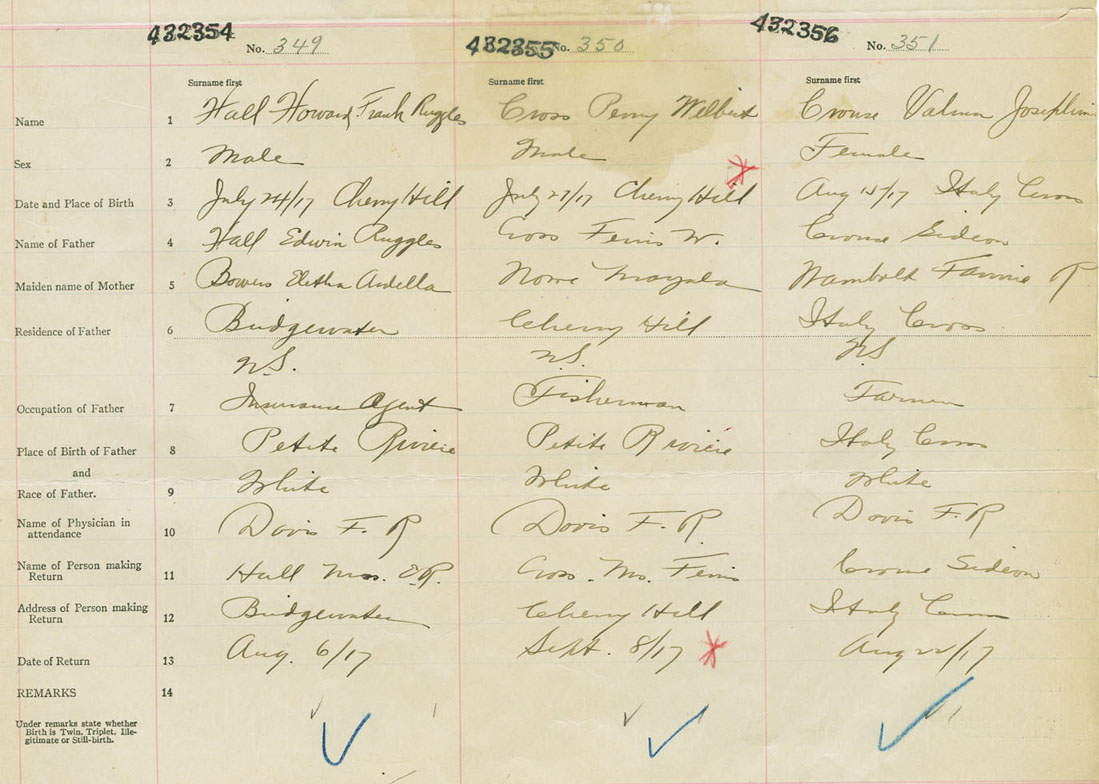 432354 No. 349 432355 No. 350 432356 No. 351
Surname first Surname first Surname first
Name 1 Hall Howard Frank Ruggles Cross Perry Wilbert Crouse Valma Josephine
Sex 2 Male Male Female
Date and Place of Birth 3 July 24/17 Cherry Hill July 27/17 Cherry Hill Aug 15/17 Italy Cross
Name of Father 4 Hall Edwin Ruggles Cross Ferris W. Crouse Gideon
Maiden name of Mother 5 Bowers Eletha Ardella Mayala Wambolt Fannie R
Residence of Father 6 Bridgewater Cherry Hill Italy Cross
N.S. N.S. N.S
Occupation of Father 7 Insurance Agent Fisherman Farmer
Place of Birth of Father 8 Petite Riviere Petite Riviere Italy Cross
and
Race of Father. 9 White White White
Name of Physician in
attendance 10 Davis F. R Davis F. R. Davis F. R
Name of Person making
Return 11 Hall Mrs. E.R. Cross. Mrs. Ferris Crouse Gideon
Address of Person making
Return 12 Bridgewater Cherry Hill Italy Cross
Date of Return 13 Aug. 6/17 Sept. 8/17 Aug 22/17
REMARKS 14
Under remarks state whether
Birth is Twin, Triplet, Ille-
gitimate or Still-birth.